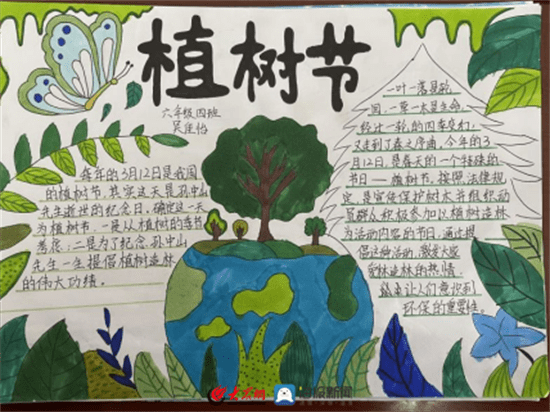 植树节
六年级四班
每年的3月12日是我国
的植树节,其实这天是孙中山
先生逝世的纪念日,确定这一天
为植树节,一是从植树的季节
着想;二是为了纪念孙中山
先生一生提倡植树造林
的伟大功绩。
一叶落
一草一木是生命,
轮过一轮的四季变幻,
又走到了春之序曲,今年的3
月12日,是春天的一个特殊的
节日——植树节,按照法律规
定,是宣传保护树木并组织动
员群众积极参加以植树造林
为活动内容的节日,通过提
倡这种活动,激发大家
爱林造林的热情,
让人们意识到
环保的重要性。
大众网
海报新闻